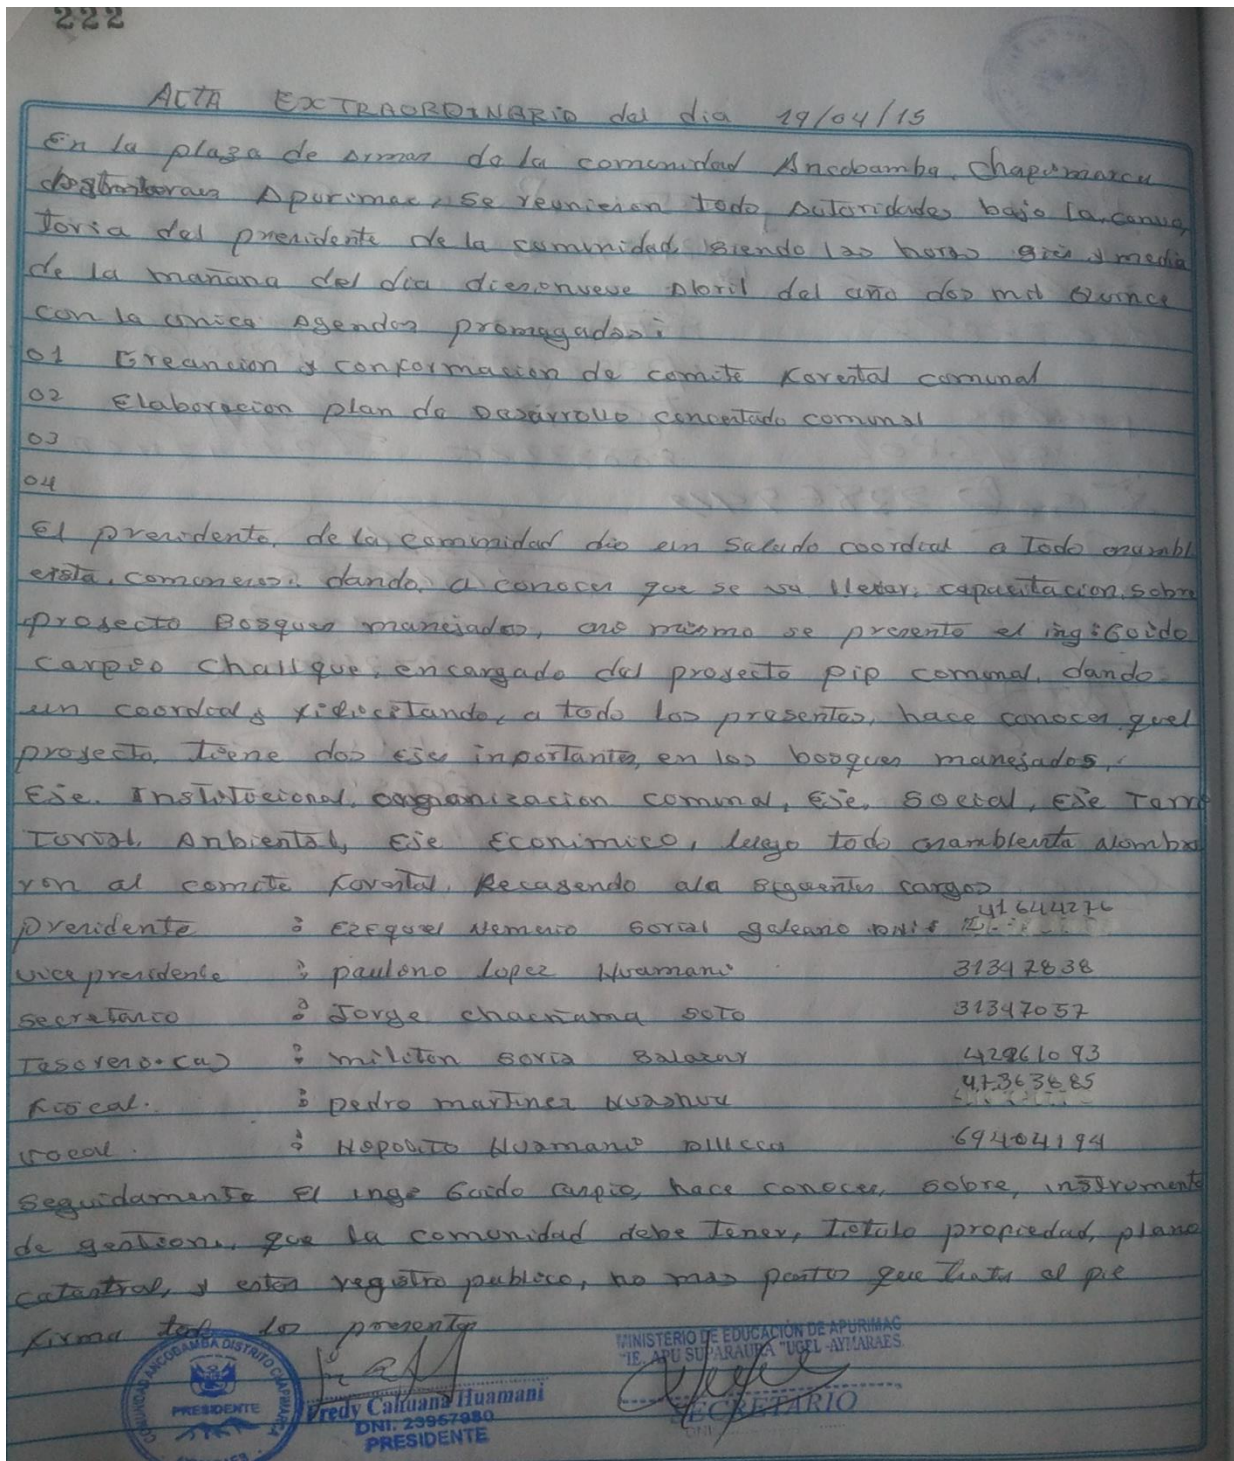 222
ACTA EXTRAORDINARIO del dia 19/04/15
En la plaza de armas de la comunidad Ancobamba, Chapimarca
Apurimac, se reunieron todo autoridades bajo la convoca
toria del presidente de la comunidad, siendo las horas y media
de la mañana del dia diesenueve Abril del año dos mil Quince
con la unica Agendas promagadas:
01 Creancion y conformacion de comite Forestal comunal
02 Elaboracion plan de Desarrollo concertado comunal
03
04
El presidente, de la comunidad dio un Saludo coordial a Todo asambl
eista, comuneros. dando, a conocer que se va llevar, capacitacion, sobre
proyecto Bosques manejados, asi mismo se presento el ing: Guido
Carpio Challque, encargado del proyecto pip comunal, dando
un coordial y filicitando, a todo los presentes, hace conocer quel
proyecto, tiene dos eje inportantes, en los bosques manejados,
Eje. Institocional, organizacion comunal, Eje, Social, Eje Terri
Torial, Anbiental, Eje Econimico, luego todo asambleista nombra
ron al comite Forestal, Recayendo ala siguentes cargos
presidente : Ezequiel Nemecio Soria galeano DNI: 41644276
vice presidente : paulino Lopez Huamani 31347838
Secretario : Jorge chacñama SOTO 31347057
Tesorero.(a) : militon Soria Salazar 42961093
Fiscal. : pedro martinez 47363885
vocal. : Huamani 69404194
Seguidamente El inge Guido Carpio, hace conocer, sobre, instrumento
de gestion, que la comunidad debe Tener, Titulo propiedad, plano
catastral, y registro publico, no mas puntos que trata al pie
Firma todo los presentes
COMUNIDAD ANCOBAMBA DISTRITO CHAPIMARCA
PRESIDENTE
Fredy Cahuana Huamani
DNI. 23957980
PRESIDENTE
MINISTERIO DE EDUCACIÓN DE APURIMAC
"IE. APU SUPARAURA "UGEL-AYMARAES
SECRETARIO
DNI